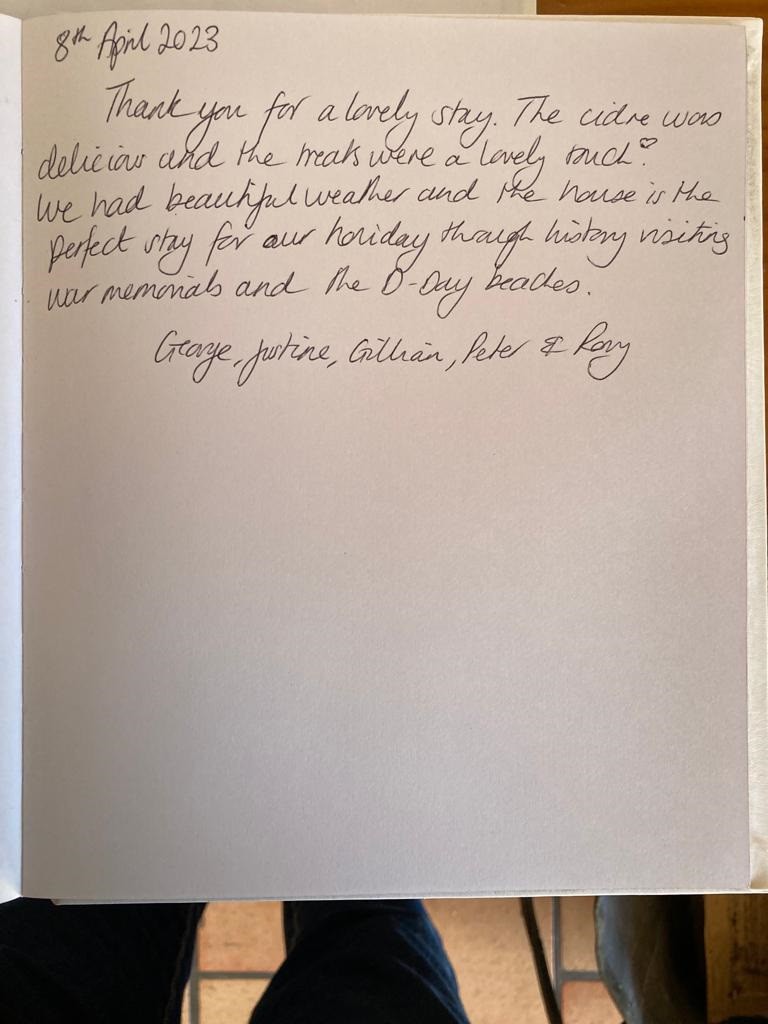 8th April 2023
Thank you for a lovely stay. The cidre was
delicious and the treats were a lovely touch ♡.
We had beautiful weather and the house is the
perfect stay for our holiday through history visiting
war memorials and the D-Day beaches.
George, Justine, Gillian, Peter & Rory